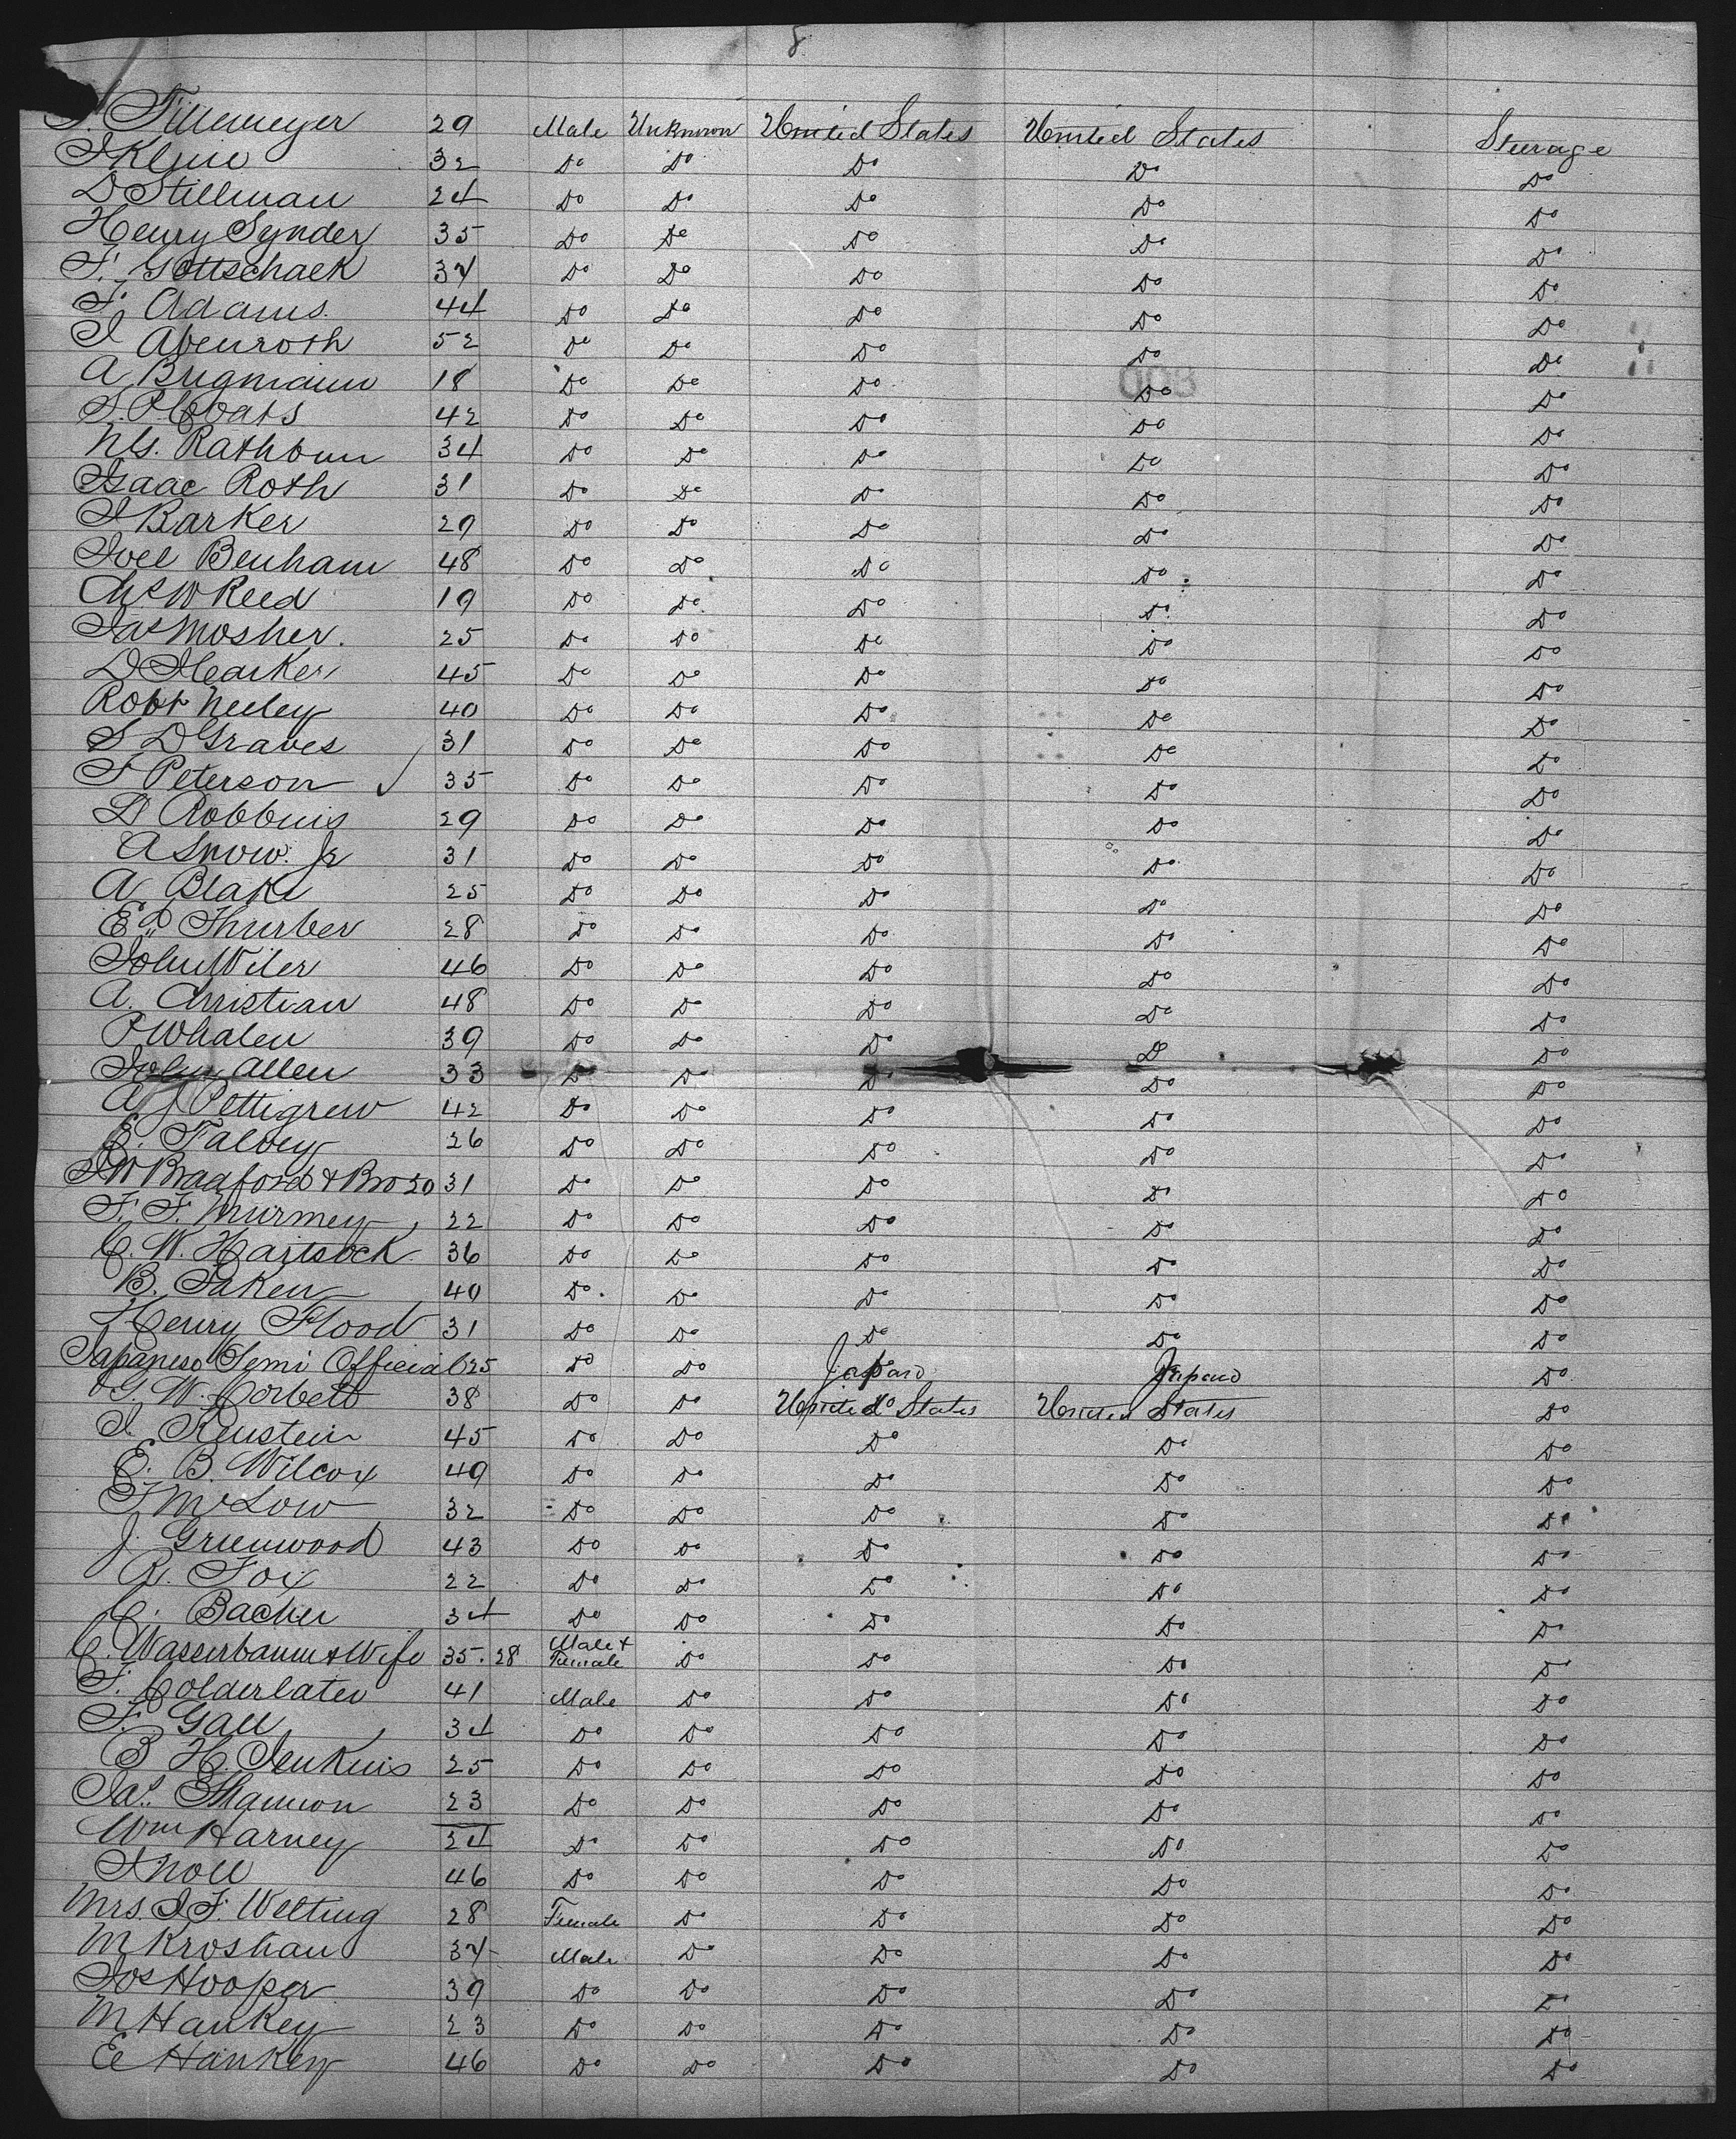 8
J. Tillemeyer 29 Male Unknown United States United States Steerage
J Klein 32 Do Do Do Do Do
D Stillman 24 Do Do Do Do Do
Henry Synder 35 Do Do Do Do Do
F. Gottschalk 34 Do Do Do Do Do
F. Adams. 44 Do Do Do Do Do
I Abenroth 52 Do Do Do Do Do
A Brigmann 18 Do Do Do Do Do
S. P. Coats 42 Do Do Do Do Do
Rathbun 34 Do Do Do Do Do
Isaac Roth 31 Do Do Do Do Do
J Barker 29 Do Do Do Do Do
Joel Benham 48 Do Do Do Do Do
W Reed 19 Do Do Do Do Do
Jas Mosher. 25 Do Do Do Do Do
D 45 Do Do Do Do Do
Robt Neeley 40 Do Do Do Do Do
S D Graves 31 Do Do Do Do Do
F Peterson 35 Do Do Do Do Do
D Robbins 29 Do Do Do Do Do
A Snow. Jr 31 Do Do Do Do Do
A Blake 25 Do Do Do Do Do
Ed Thurber 28 Do Do Do Do Do
John Wiler 46 Do Do Do Do Do
A. Christian 48 Do Do Do Do Do
P Whalen 39 Do Do Do Do Do
John Allen 33 Do Do Do Do Do
A J Pettigrew 42 Do Do Do Do Do
E. Falvey 26 Do Do Do Do Do
J W Bradford & Bro 20 31 Do Do Do Do Do
F. F. Murmey 22 Do Do Do Do Do
C. W. Hartsock 36 Do Do Do Do Do
B. Saken 40 Do Do Do Do Do
Henry Flood 31 Do Do Do Do Do
Japanese Semi Official 25 Do Do Japan Japan Do
G. W. Corbett 38 Do Do United States United States Do
I Renstein 45 Do Do Do Do Do
E. B. Wilcox 49 Do Do Do Do Do
F Mc Low 32 Do Do Do Do Do
J. Greenwood 43 Do Do Do Do Do
R. Fox 22 Do Do Do Do Do
C. Bacher 34 Do Do Do Do Do
C. Wasserbaum & Wife 35. 28 Male & Female Do Do Do Do
F. Colderlater 41 Male Do Do Do Do
F. Gall 34 Do Do Do Do Do
B H. Jenkins 25 Do Do Do Do Do
Jas. Shannon 23 Do Do Do Do Do
Wm Harney 24 Do Do Do Do Do
J Noll 46 Do Do Do Do Do
Mrs. J F. Welting 28 Female Do Do Do Do
M Kroshan 34 Male Do Do Do Do
Jos Hooper 39 Do Do Do Do Do
M Hankey 23 Do Do Do Do Do
E Hankey 46 Do Do Do Do Do